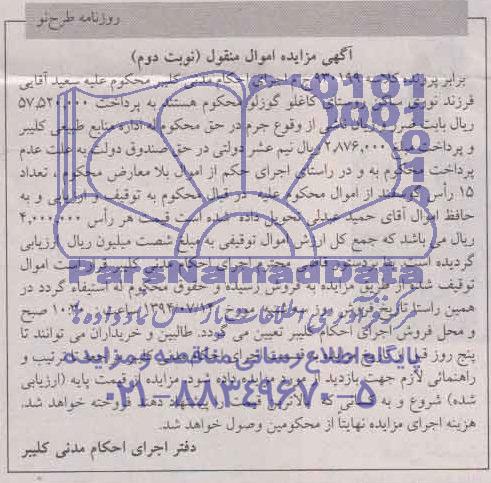 روزنامه طرح‌نو
آگهی مزایده اموال منقول (نوبت دوم)
برابر پرونده کلاسه ۹۳۰۱۹۹ ج م اجرای احکام مدنی کلیبر محکوم علیه سعید آقایی
فرزند نوری ساکن روستای کاغلو گوزلو محکوم هستند به پرداخت ۵۷,۵۲۰,۰۰۰
ریال بابت ضرر و زیان ناشی از وقوع جرم در حق محکوم له اداره منابع طبیعی کلیبر
و پرداخت مبلغ ۲,۸۷۶,۰۰۰ ریال نیم عشر دولتی در حق صندوق دولت به علت عدم
پرداخت محکوم به و در راستای اجرای حکم از اموال بلا معارض محکوم ، تعداد
۱۵ رأس گوسفند از اموال محکوم علیه در قبال محکوم به توقیف و ارزیابی و به
حافظ اموال آقای حمید عبدلی تحویل داده شده است قیمت هر رأس ۴,۰۰۰,۰۰۰
ریال می باشد که جمع کل ارزش اموال توقیفی به مبلغ شصت میلیون ریال ارزیابی
گردیده است. بنا بدستور قاضی محترم اجرای احکام مدنی کلیبر قرار است اموال
توقیف شده از طریق مزایده به فروش رسیده و حقوق محکوم له استیفاء گردد در
همین راستا تاریخ فروش روز مورخ ساعت ۱۰ صبح
و محل فروش اجرای احکام کلیبر تعیین می گردد. طالبین و خریداران می توانند تا
پنج روز قبل از اجرای احکام مدنی کلیبر مراجعه تا ترتیب و
راهنمائی لازم جهت بازدید از مورد مزایده داده شود. مزایده از قیمت پایه (ارزیابی
شده) شروع و به کسانی که بالاترین قیمت را پیشنهاد دهند فروخته خواهد شد.
هزینه اجرای مزایده نهایتاً از محکومین وصول خواهد شد.
دفتر اجرای احکام مدنی کلیبر
ParsNamadData
مرکز فرآوری اطلاعات پارس نماد داده ها
پایگاه اطلاع رسانی مناقصه و مزایده
۰۲۱-۸۸۳۴۹۶۷۰-۵